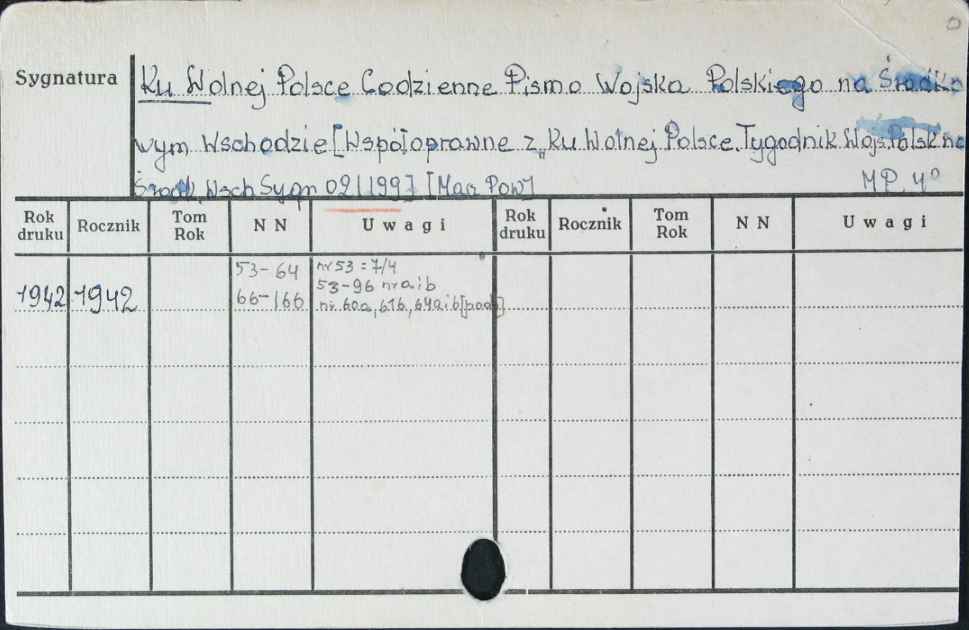 Sygnatura
Ku Wolnej Polsce Codzienne Pismo Wojska Polskiego na Środko
wym Wschodzie [Współoprawne z „Ku Wolnej Polsce. Tygodnik Wojs. Polsk na
Środk. Wsch Sygn 091199] [Mag Pow]
MP. 4°
Rok druku Rocznik Tom Rok N N Uwagi Rok druku Rocznik Tom Rok N N Uwagi
53-64 nr 53 = 7/4
53-96 nr a i b
1942 1942 66-166 nr 60a, 61b, 64a i b